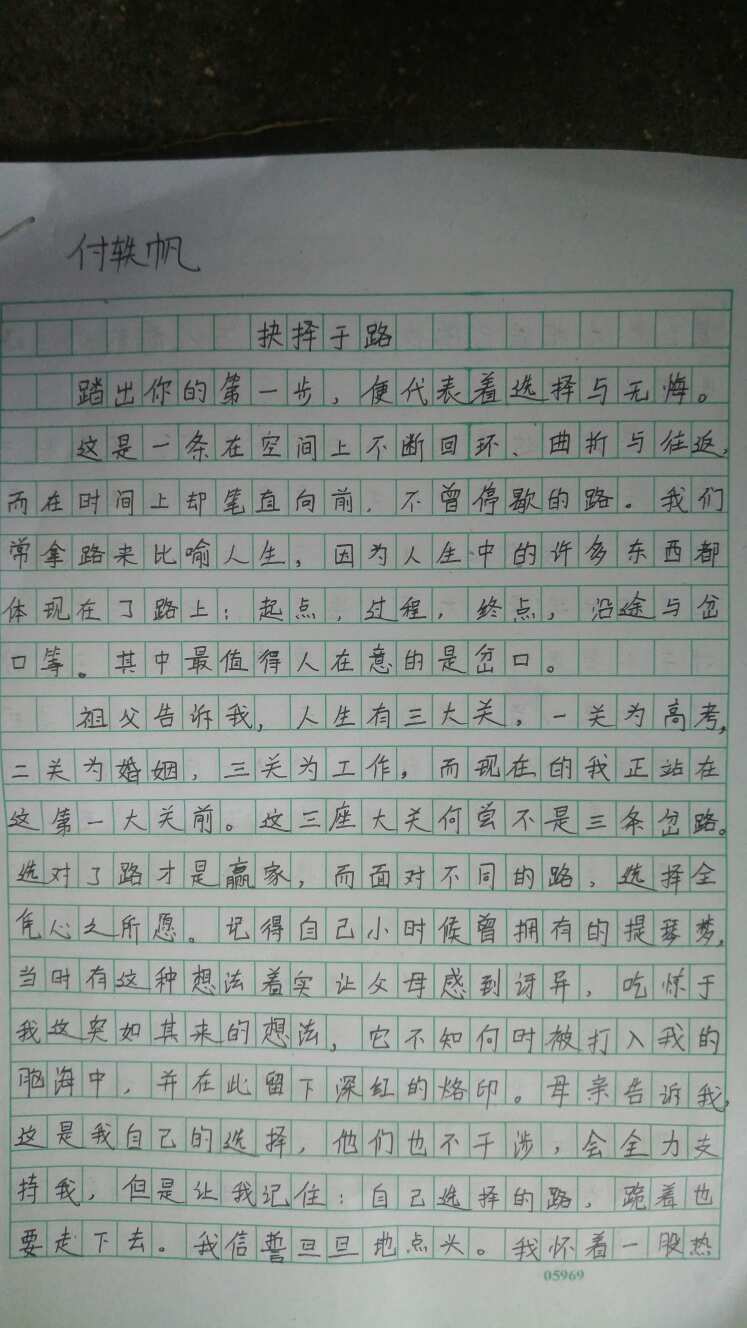 付轶帆
抉择于路
踏出你的第一步，便代表着选择与无悔。
这是一条在空间上不断回环、曲折与往返，
而在时间上却笔直向前，不曾停歇的路。我们
常拿路来比喻人生，因为人生中的许多东西都
体现在了路上：起点，过程，终点，沿途与岔
口等。其中最值得人在意的是岔口。
祖父告诉我，人生有三大关，一关为高考，
二关为婚姻，三关为工作，而现在的我正站在
这第一大关前。这三座大关何尝不是三条岔路。
选对了路才是赢家，而面对不同的路，选择全
凭心之所愿。记得自己小时候曾拥有的提琴梦，
当时有这种想法着实让父母感到讶异，吃惊于
我这突如其来的想法，它不知何时被打入我的
脑海中，并在此留下深红的烙印。母亲告诉我，
这是我自己的选择，他们也不干涉，会全力支
持我，但是让我记住：自己选择的路，跪着也
要走下去。我信誓旦旦地点头。我怀着一股热
05969